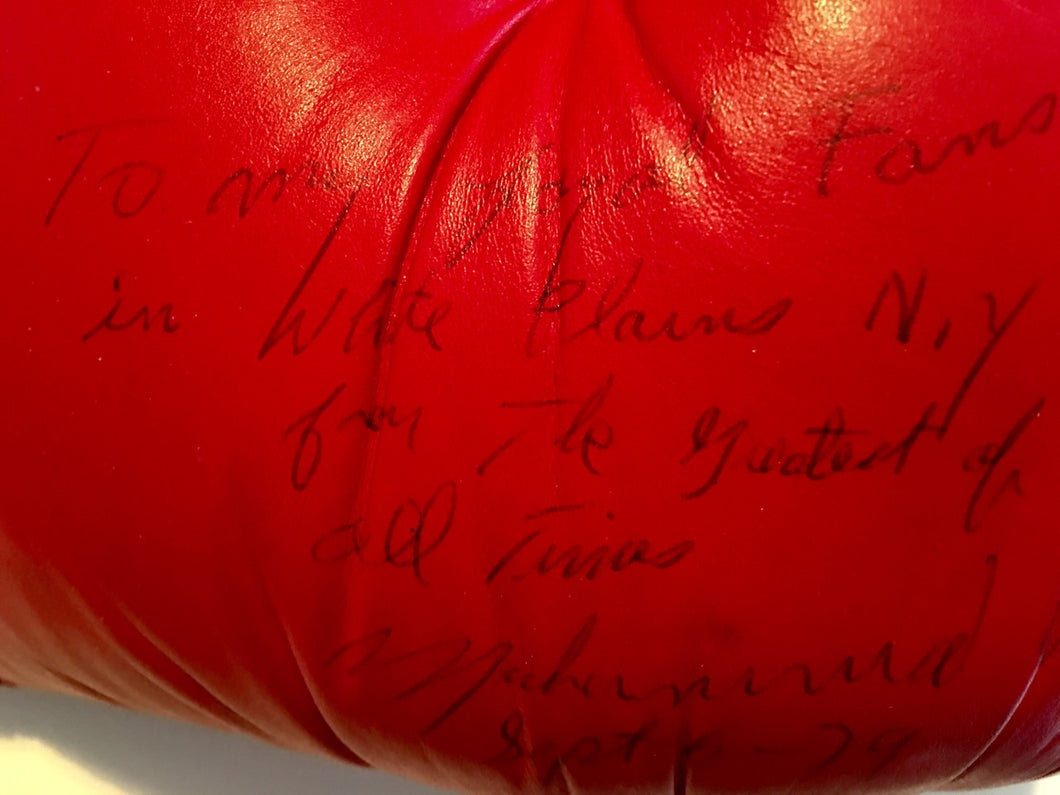 To my loyal Fans
in White Plains N,Y
from The Greatest of
all Times
Muhammad
Sept 6-79